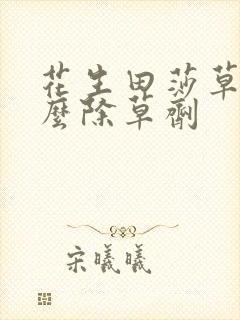 花生田莎草
麽除草劑
宋曦曦